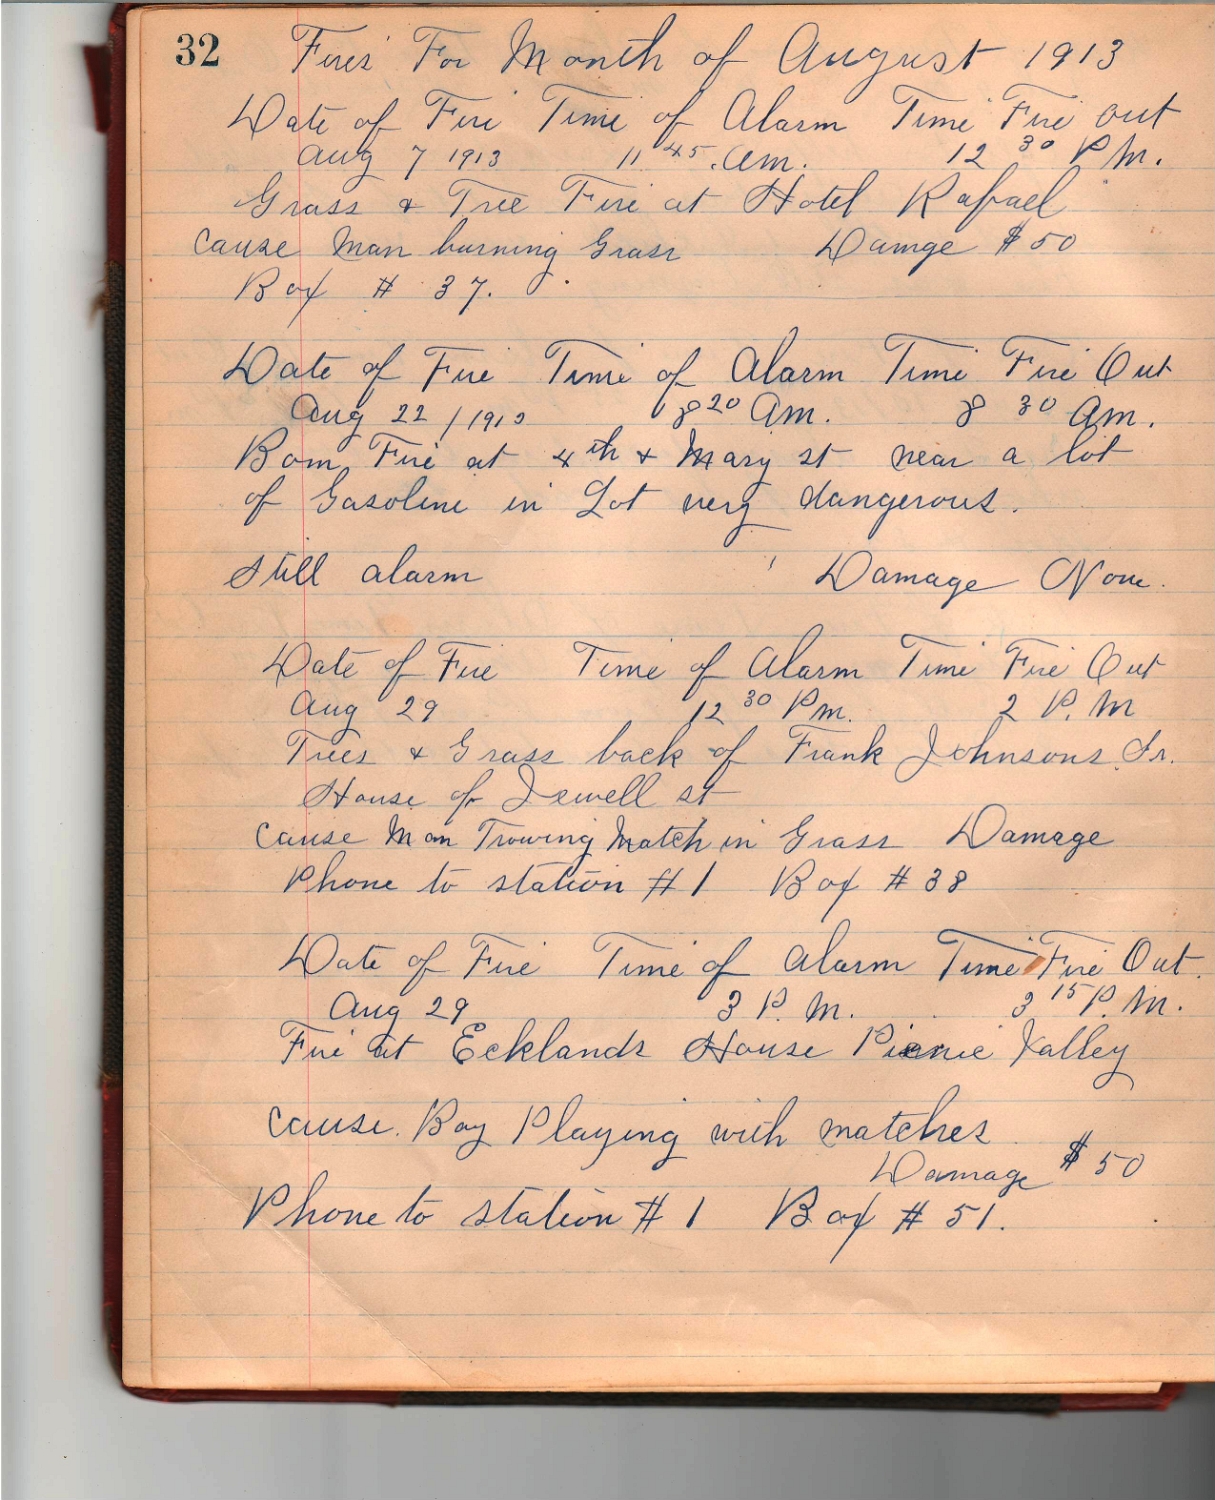 32 Fires For Month of August 1913
Date of Fire Time of Alarm Time Fire out
Aug 7 1913 11 45 .am. 12 30 P.M.
Grass & Tree Fire at Hotel Rafael
Cause Man burning Grass Damge $50
Box # 37.
Date of Fire Time of Alarm Time Fire Out
Aug 22 / 1913 8 20 Am. 8 30 am.
Bom Fire at 4th & Mary st near a lot
of Gasoline in Lot very dangerous.
Still alarm Damage None.
Date of Fire Time of Alarm Time Fire Out
Aug 29 12 30 Pm. 2 P. M
Trees & Grass back of Frank Johnsons Sr.
House of Jewell st
Cause Man Trowing Match in Grass Damage
Phone to station # 1 Box # 38
Date of Fire Time of Alarm Time Fire Out.
Aug 29 3 P. M. 3 15 P. M.
Fire at Ecklands House Picnic Valley
Cause. Boy Playing with matches
Damage $50
Phone to station # 1 Box # 51.